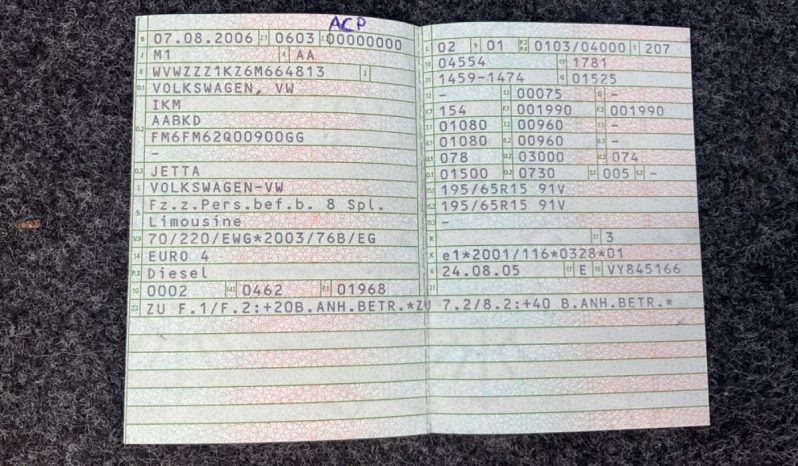 ACP
B 07.08.2006 2.1 0603 2.2 00000000
J M1 4 AA
E WVWZZZ1KZ6M664813 3
D.1 VOLKSWAGEN, VW
IKM
D.2 AABKD
FM6FM62Q00900GG
-
D.3 JETTA
2 VOLKSWAGEN-VW
5 Fz.z.Pers.bef.b. 8 Spl.
Limousine
V.9 70/220/EWG*2003/76B/EG
14 EURO 4
P.3 Diesel
10 0002 14.1 0462 P.1 01968
22 ZU F.1/F.2:+20B.ANH.BETR.*ZU 7.2/8.2:+40 B.ANH.BETR.*
L 02 9 01 P.2/P.4 0103/04000 T 207
18 04554 19 1781
20 1459-1474 G 01525
- 13 00075 Q -
V.7 154 F.1 001990 F.2 001990
7.1 01080 7.2 00960 7.3 -
8.1 01080 8.2 00960 8.3 -
U.1 078 U.2 03000 U.3 074
O.1 01500 O.2 0730 S.1 005 S.2 -
15.1 195/65R15 91V
15.2 195/65R15 91V
15.3 -
R 11 3
K e1*2001/116*0328*01
6 24.08.05 17 E 16 VY845166
21